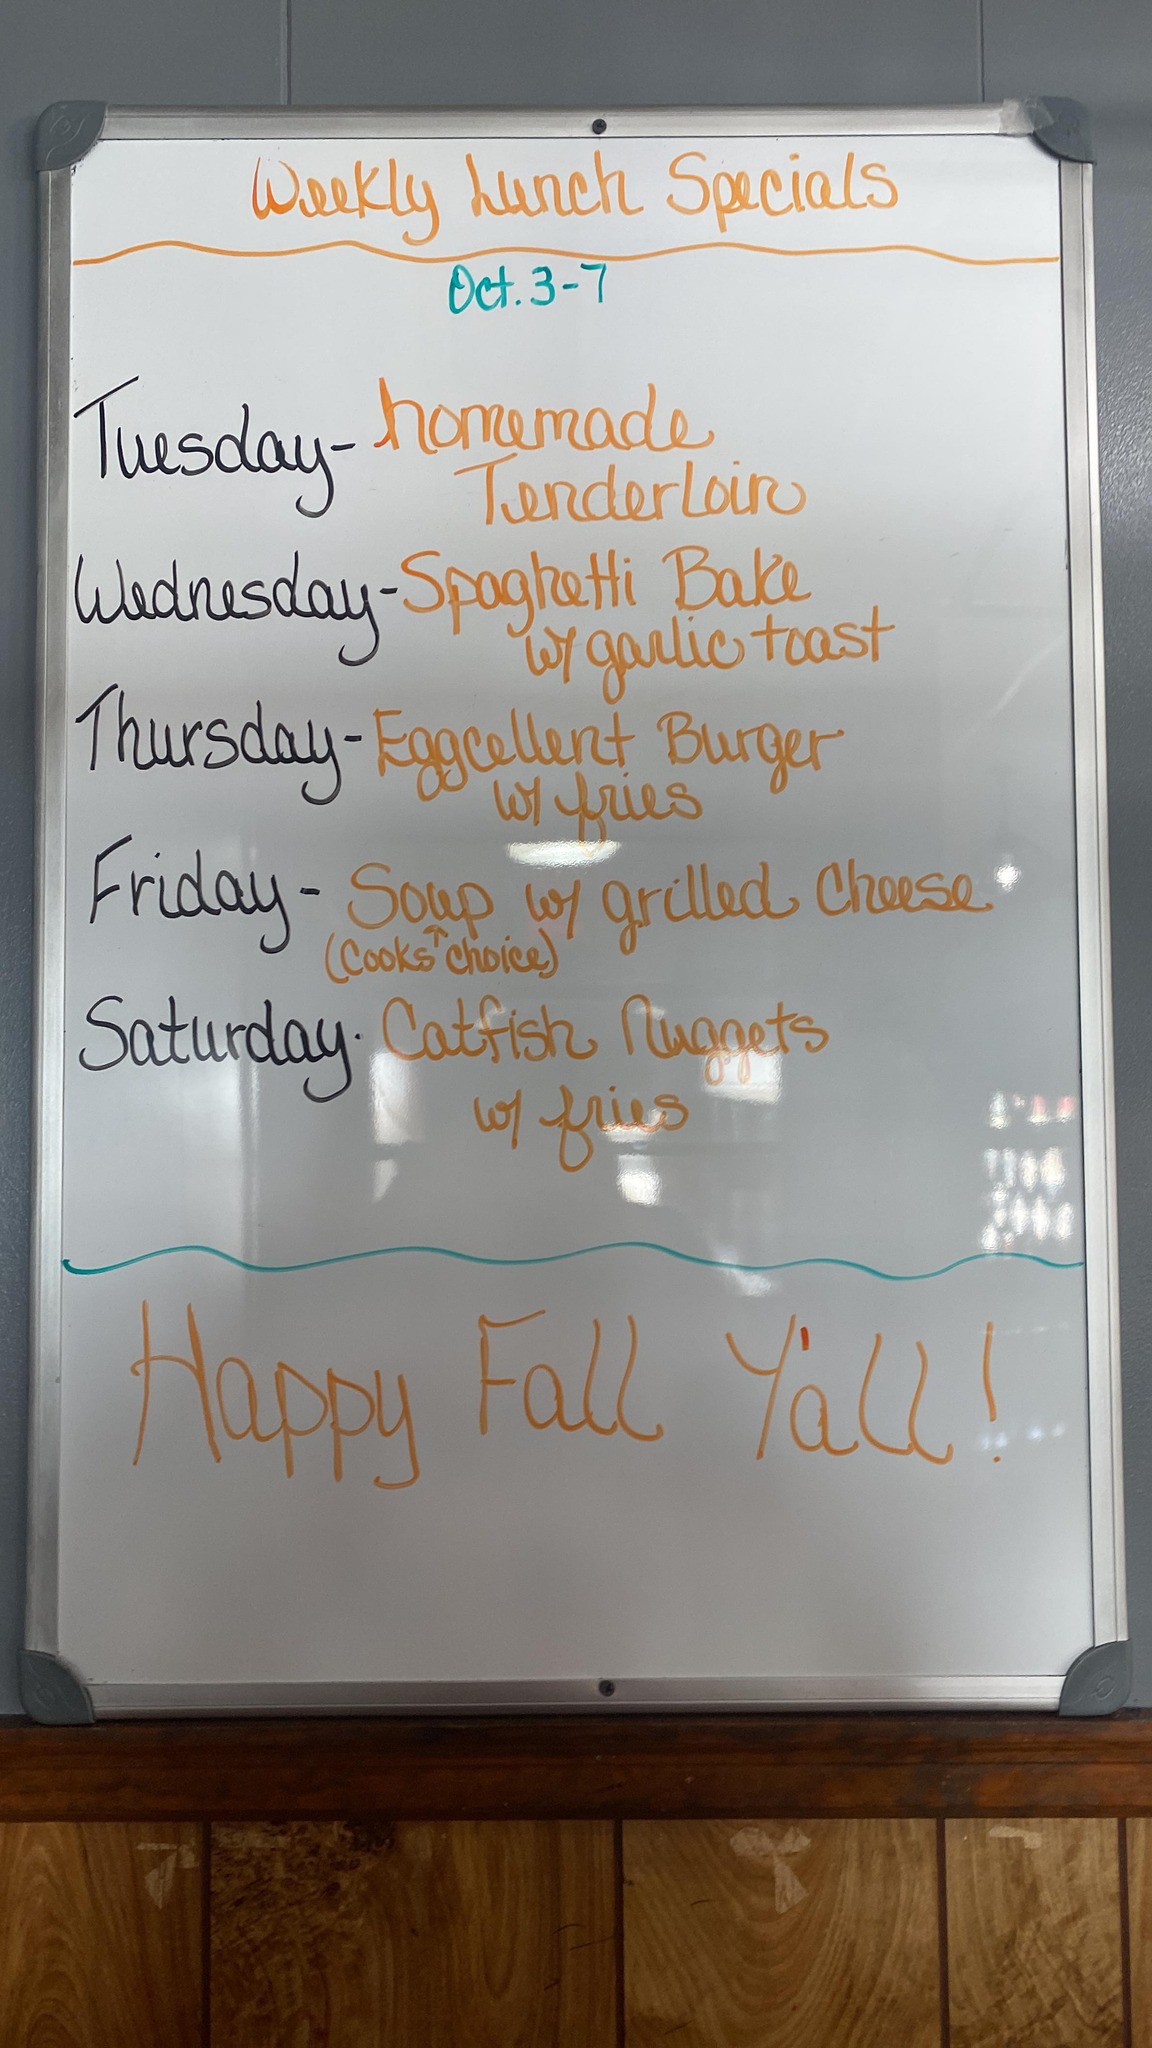 Weekly Lunch Specials
Oct. 3-7
Tuesday- homemade
Tenderloin
Wednesday- Spaghetti Bake
w/ garlic toast
Thursday- Eggcellent Burger
w/ fries
Friday- Soup w/ grilled Cheese
(Cooks choice)
Saturday- Catfish Nuggets
w/ fries
Happy Fall Y'all!